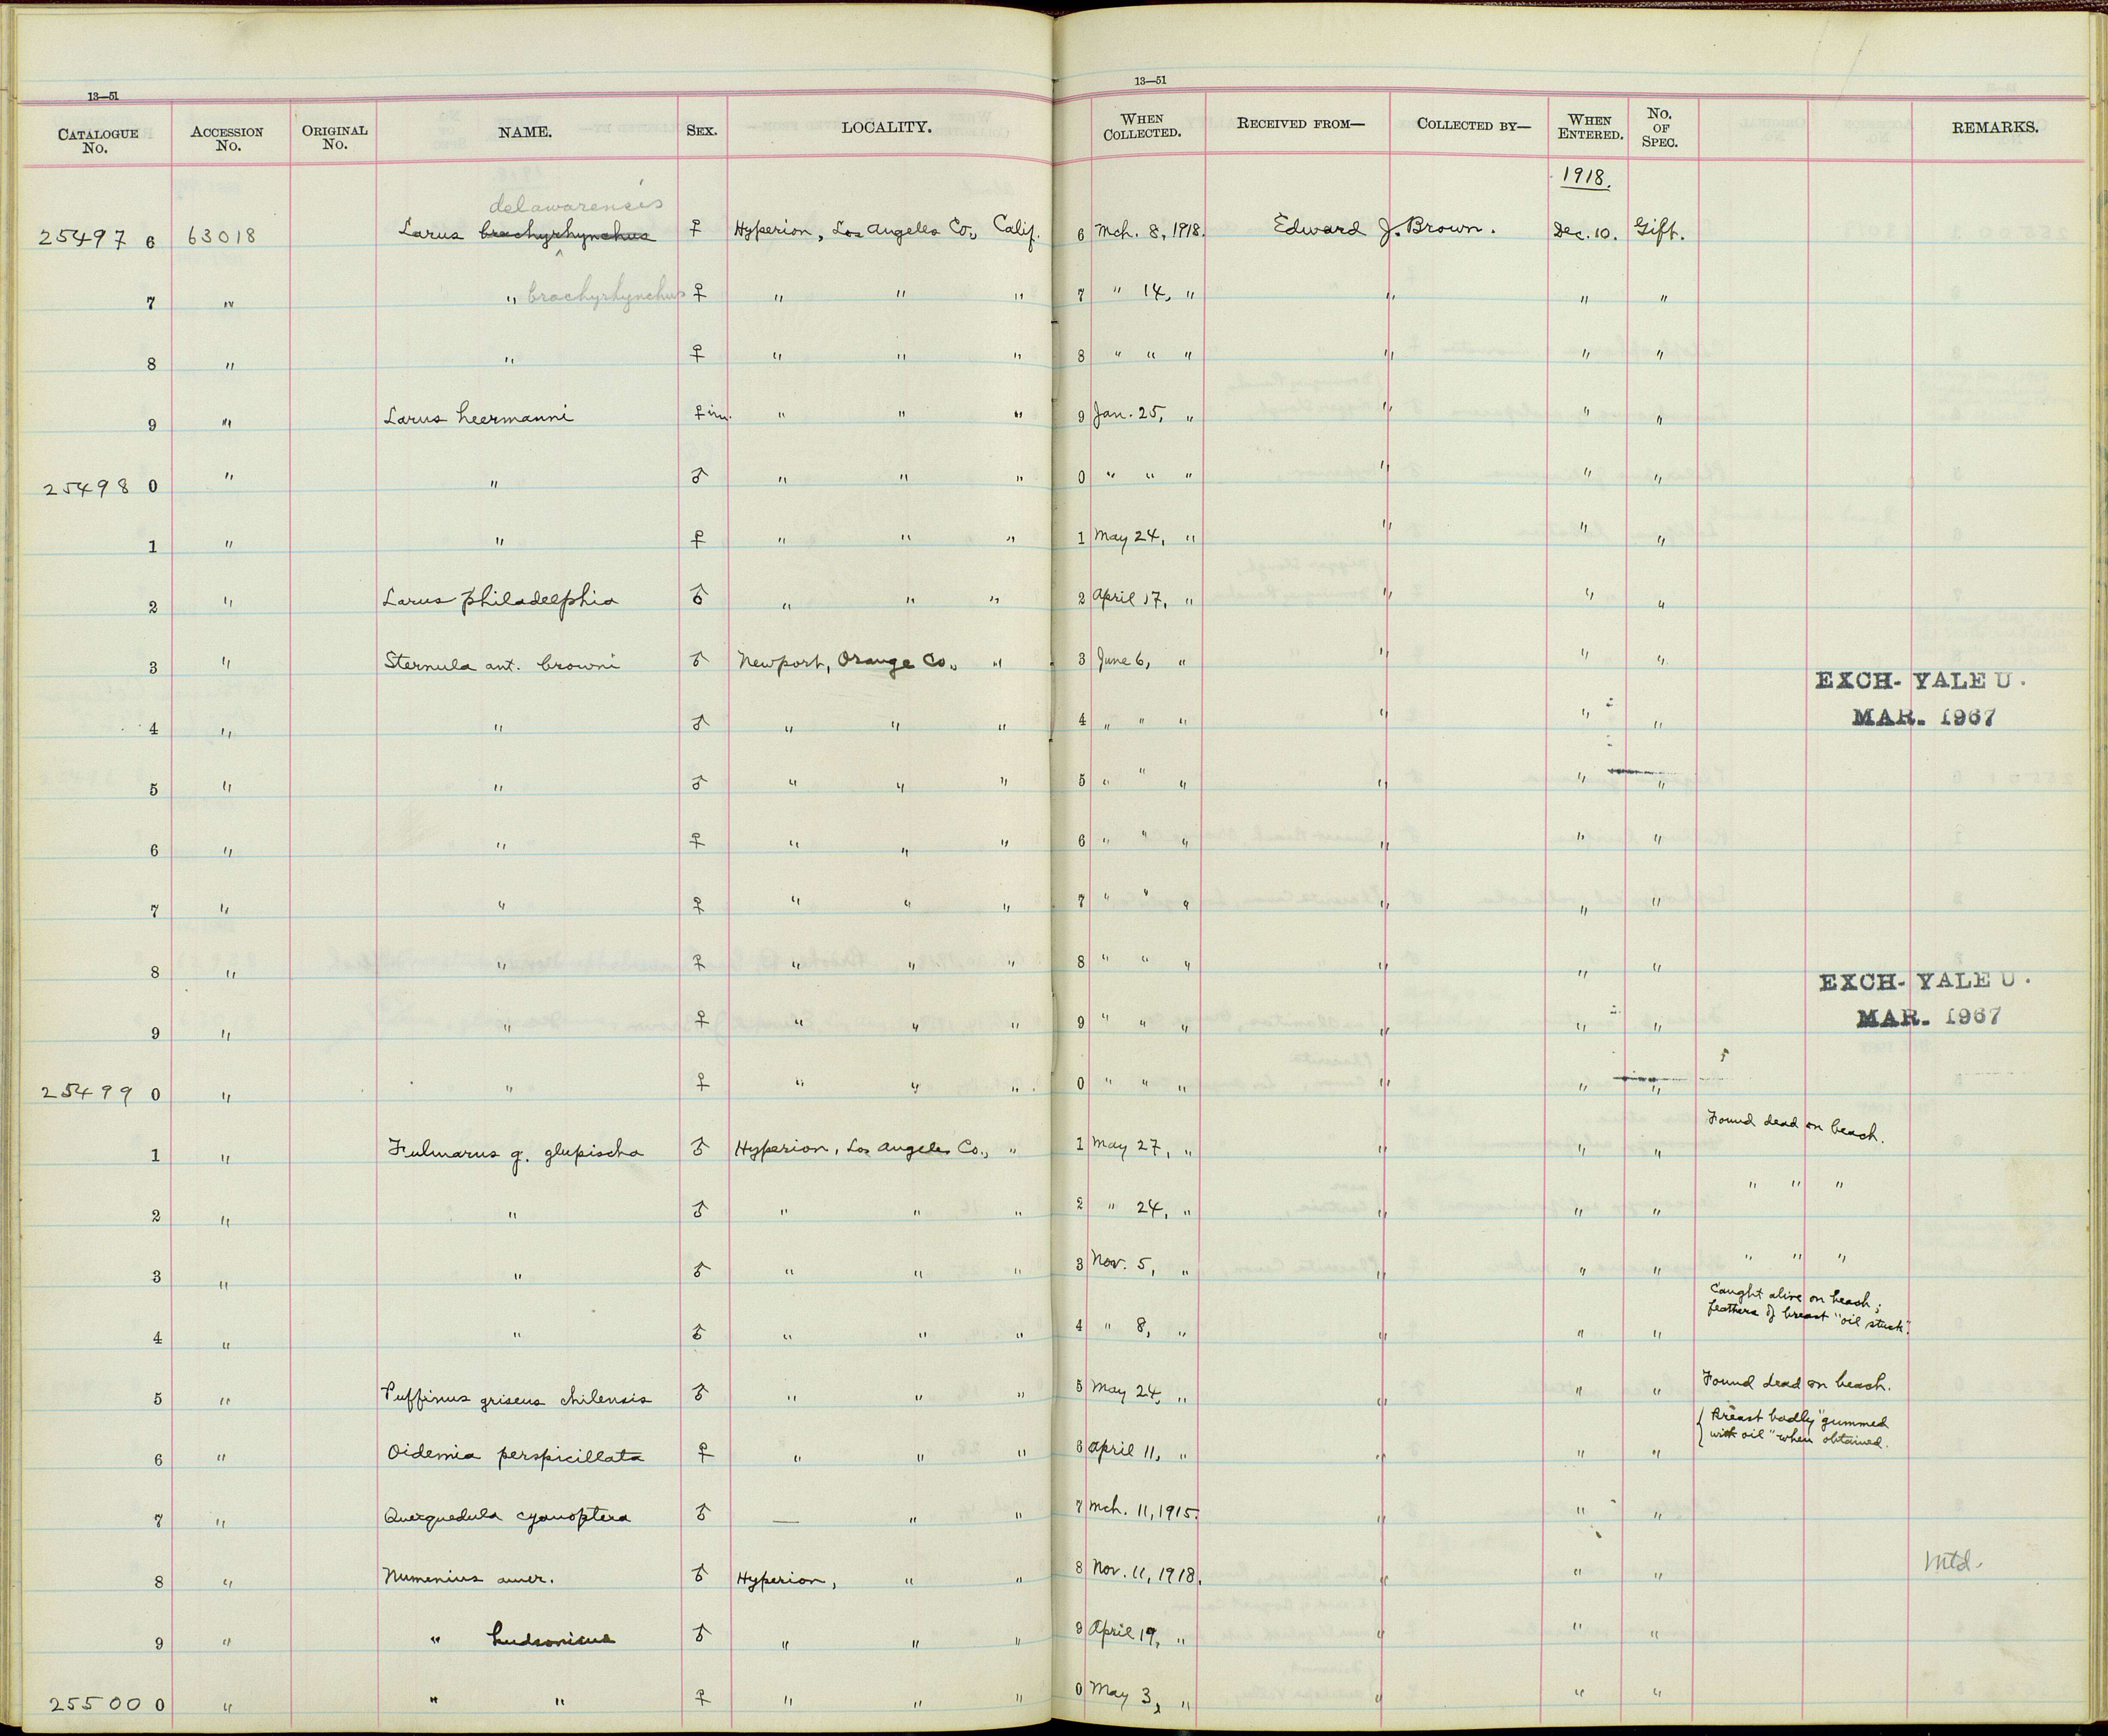 13—51
13—51
CATALOGUE No. ACCESSION No. ORIGINAL No. NAME. SEX. LOCALITY. WHEN COLLECTED. RECEIVED FROM— COLLECTED BY— WHEN ENTERED. No. OF SPEC. REMARKS.
1918.
delawarensis
25497 6 63018 Larus brachyrhynchus ♀ Hyperion, Los Angeles Co., Calif. 6 Mch. 8, 1918. Edward J. Brown. Dec. 10. Gift.
7 " " brachyrhynchus ♀ " " " 7 " 14, " " " "
8 " " ♀ " " " 8 " " " " " "
9 " Larus heermanni ♀ im. " " " 9 Jan. 25, " " " "
25498 0 " " ♂ " " " 0 " " " " " "
1 " " ♀ " " " 1 May 24, " " " "
2 " Larus philadelphia ♂ " " " 2 April 17, " " " "
3 " Sternula ant. browni ♂ Newport, Orange Co., " 3 June 6, " " " "
EXCH- YALE U.
4 " " ♂ " " " 4 " " " " " " MAR. 1967
5 " " ♂ " " " 5 " " " " " "
6 " " ♀ " " " 6 " " " " " "
7 " " ♀ " " " 7 " " " " " "
8 " " ♀ " " " 8 " " " " " "
EXCH- YALE U.
9 " " ♀ " " " 9 " " " " " " MAR. 1967
25499 0 " " ♀ " " " 0 " " " " " "
1 " Fulmarus g. glupischa ♂ Hyperion, Los Angeles Co., " 1 May 27, " " " " Found dead on beach.
2 " " ♂ " " " 2 " 24, " " " " " " "
3 " " ♂ " " " 3 Nov. 5, " " " " " " "
4 " " ♂ " " " 4 " 8, " " " " Caught alive on beach;
feathers of breast "oil stuck".
5 " Puffinus griseus chilensis ♂ " " " 5 May 24, " " " " Found dead on beach.
6 " Oidemia perspicillata ♀ " " " 6 April 11, " " " " Breast badly "gummed
with oil" when obtained.
7 " Querquedula cyanoptera ♂ — " " 7 Mch. 11, 1915. " " "
8 " Numenius amer. ♂ Hyperion, " " 8 Nov. 11, 1918. " " " Mtd.
9 " " hudsonicus ♂ " " " 9 April 19, " " " "
25500 0 " " " ♀ " " " 0 May 3, " " " "